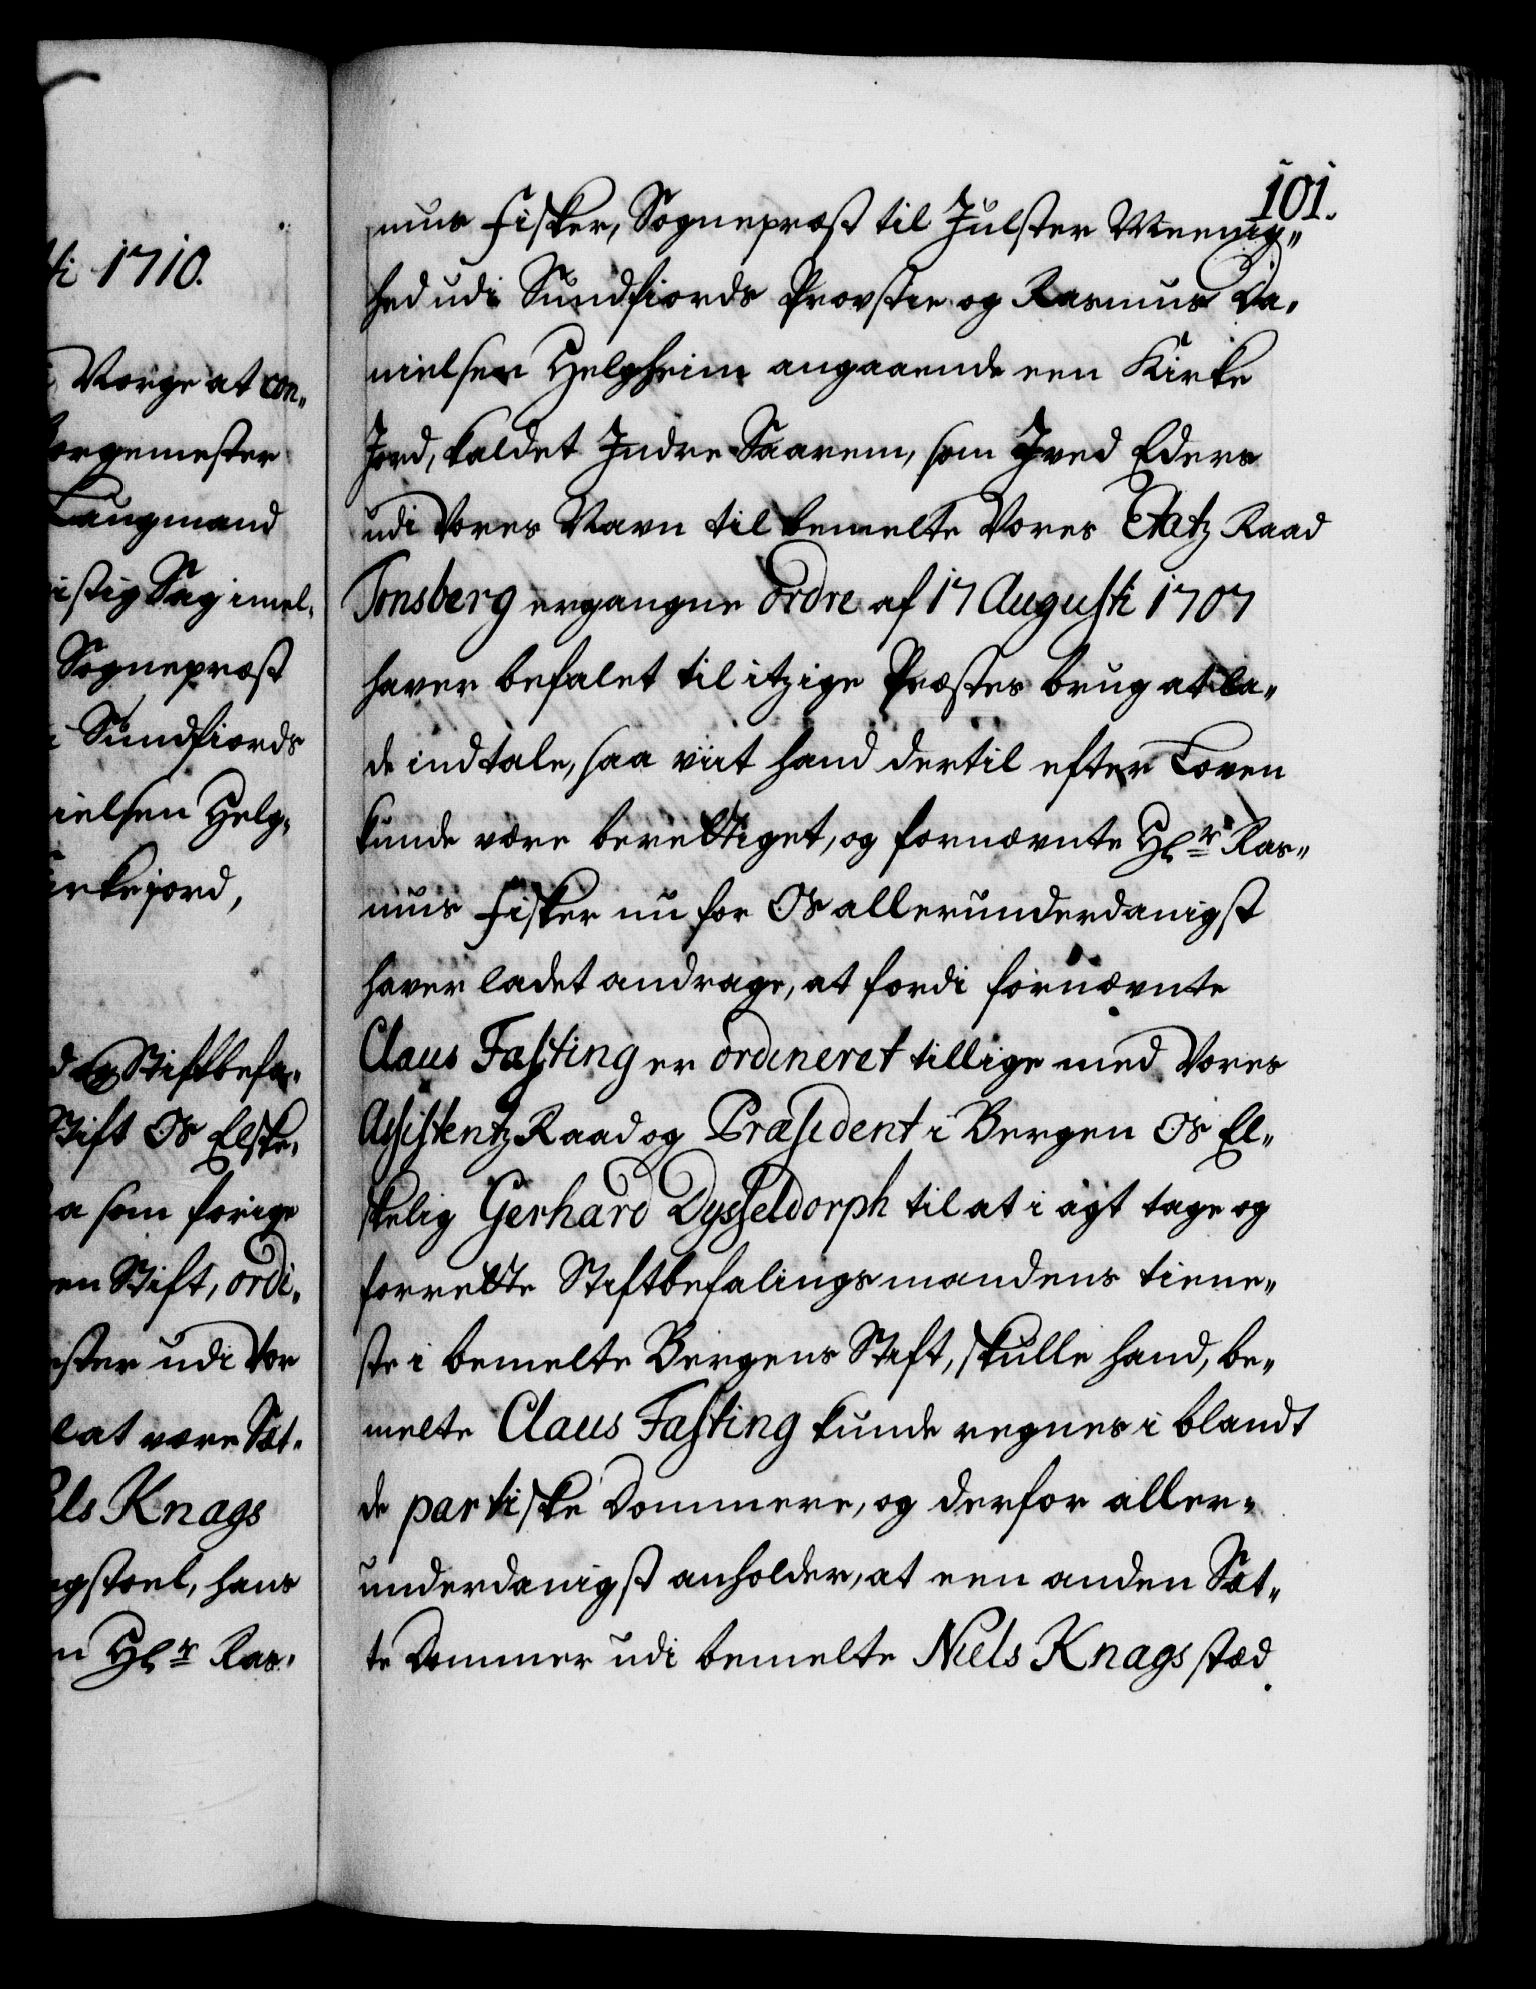 ti 1710.
Norge at con¬
borgemester
Laugmand
istig Sag imel¬
Sognepræst
Sundfiords
ielsen Helg¬
irkejord,
d og Stiftbefa¬
Stift Os Elske¬
a som forige
en Stift, ordi¬
ester udi Vor
lat være Sæt¬
els Knags
gstoel, hans
n Hl^r Ras¬
101.
mus Fisker, Sognepræst til Julster Meenig¬
hed udi Sundfiords Provstie og Rasmus Da¬
nielsen Helgheim angaaende een Kirke
Jord, kaldet Indre Saarem, som I ved Eders
udi Vores Navn til bemelte Vores Etatz Raad
Tonsberg ergangne ordre af 17 Augusti 1707
haver befalet til itzige Præstes brug at la¬
de indtale, saa viit hand dertil efter Loven
kunde være berettiget, og fornævnte Hl^r Ras¬
mus Fisker nu for Os allerunderdanigst
haver ladet andrage, at fordi fornævnte
Claus Fasting er ordineret tillige med Vores
Assistentz Raad og Præsident i Bergen Os El¬
skelig Gerhard Dysseldorph til at i agt tage og
forrette Stiftbefalingsmandens tiene¬
ste i bemelte Bergens Stift, skulle hand, be¬
melte Claus Fasting kunde regnes i blandt
de partiske Dommere, og derfor aller¬
underdanigst anholder, at een anden Sæt¬
te Dommer udi bemelte Niels Knags stæd